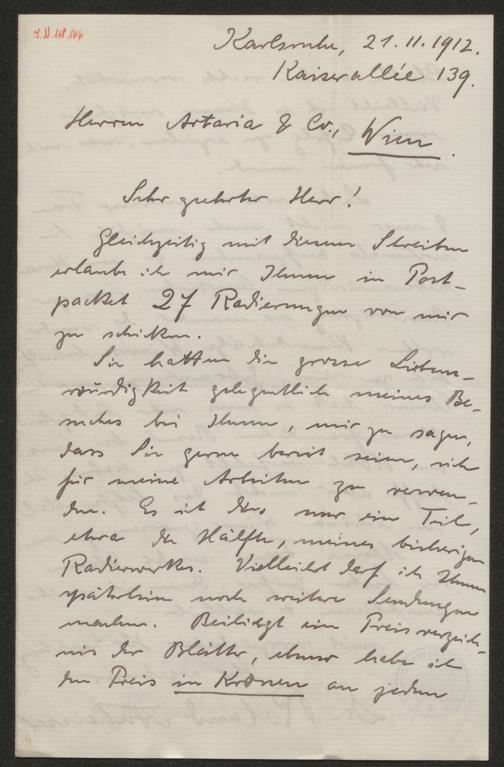 I.N. 161.166
Karlsruhe, 21.11.1912.
Kaiserallée 139.
Herren Artaria & Co., Wien.
Sehr geehrter Herr!
Gleichzeitig mit diesem Schreiben
erlaube ich mir Ihnen in Post-
packet 27 Radierungen von mir
zu schicken.
Sie hatten die grosse Liebens-
würdigkeit gelegentlich meines Be-
suches bei Ihnen, mir zu sagen,
dass Sie gerne bereit seien, sich
für meine Arbeiten zu verwen-
den. Es ist dies nur ein Teil,
etwa die Hälfte, meines bisherigen
Radierwerkes. Vielleicht darf ich Ihnen
späterhin noch weitere Sendungen
machen. Beiliegt ein Preisverzeich-
nis der Blätter, ebenso habe ich
den Preis in Kronen an jedem